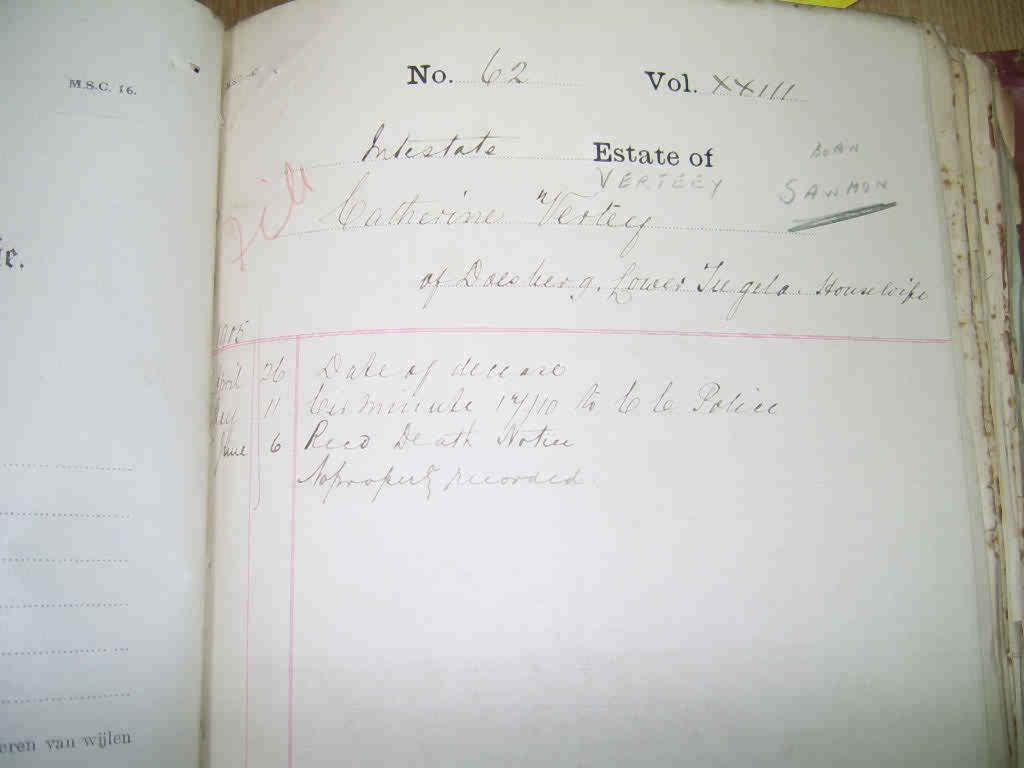 M.S.C. 16.
No. 62 Vol. XXIII
Intestate Estate of
BORN
VERTEEY SAWMON
Catherine Vertey
of Doesberg, Lower Tugela. Housewife
April 26 Date of decease
11 Cir minute 17/10 to C C Police
June 6 Recd Death Notice
No property recorded
eren van wijlen